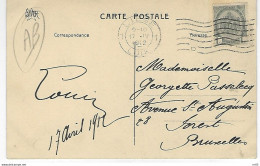 AB
CARTE POSTALE
Correspondance
1912
Mademoiselle
Georgette
Avenue St Augustin
28
Forest
Bruxelles
Louis
17 Avril 1912